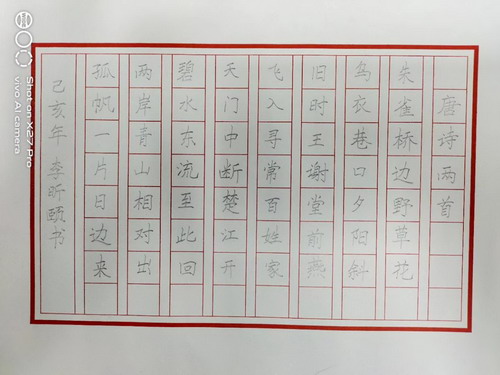 唐诗两首
朱雀桥边野草花
乌衣巷口夕阳斜
旧时王谢堂前燕
飞入寻常百姓家
天门中断楚江开
碧水东流至此回
两岸青山相对出
孤帆一片日边来
己亥年 李昕颐书
Shot on X27 Pro
vivo AI camera